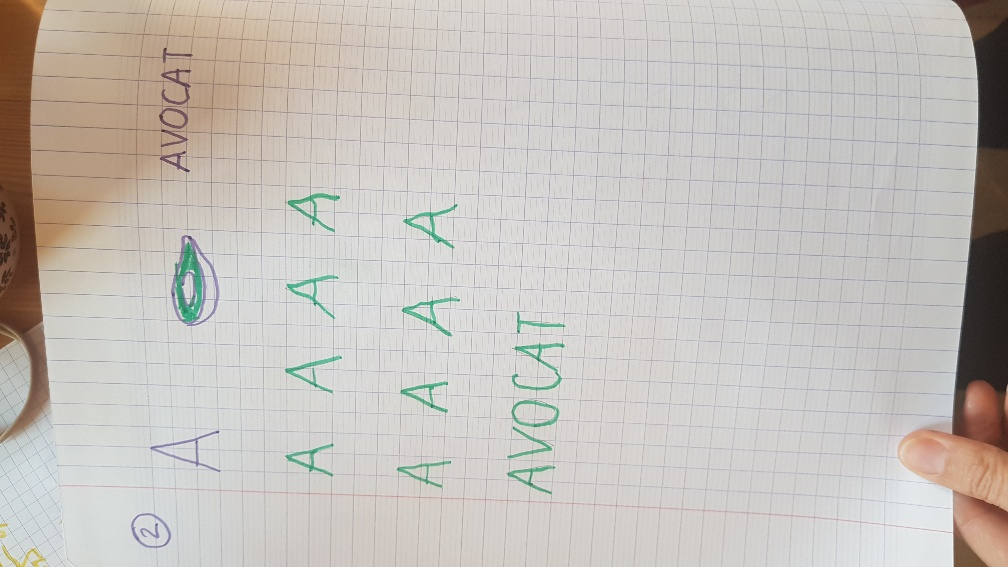 2
A AVOCAT
A A A A
A A A A
AVOCAT